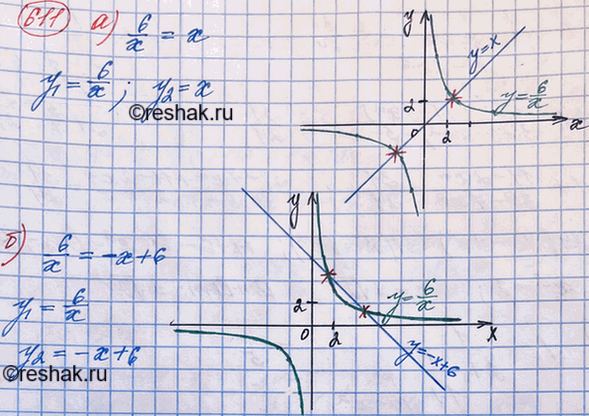 611 а) 6/x = x
y₁ = 6/x ; y₂ = x
©reshak.ru
y
y=x
y=6/x
2
0
2
x
б) 6/x = -x+6
y₁ = 6/x
y₂ = -x+6
©reshak.ru
y
y=6/x
2
0
2
x
y=-x+6